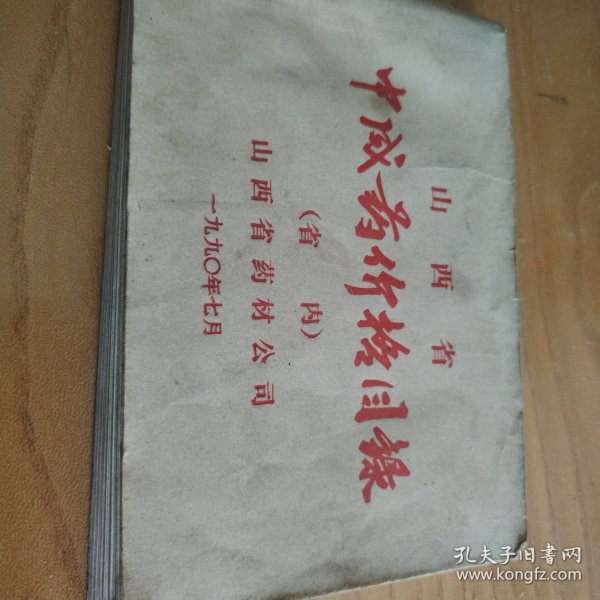 山西省
中成药价格目录
(省内)
山西省药材公司
一九九〇年七月
孔夫子旧书网
www.kongfz.com